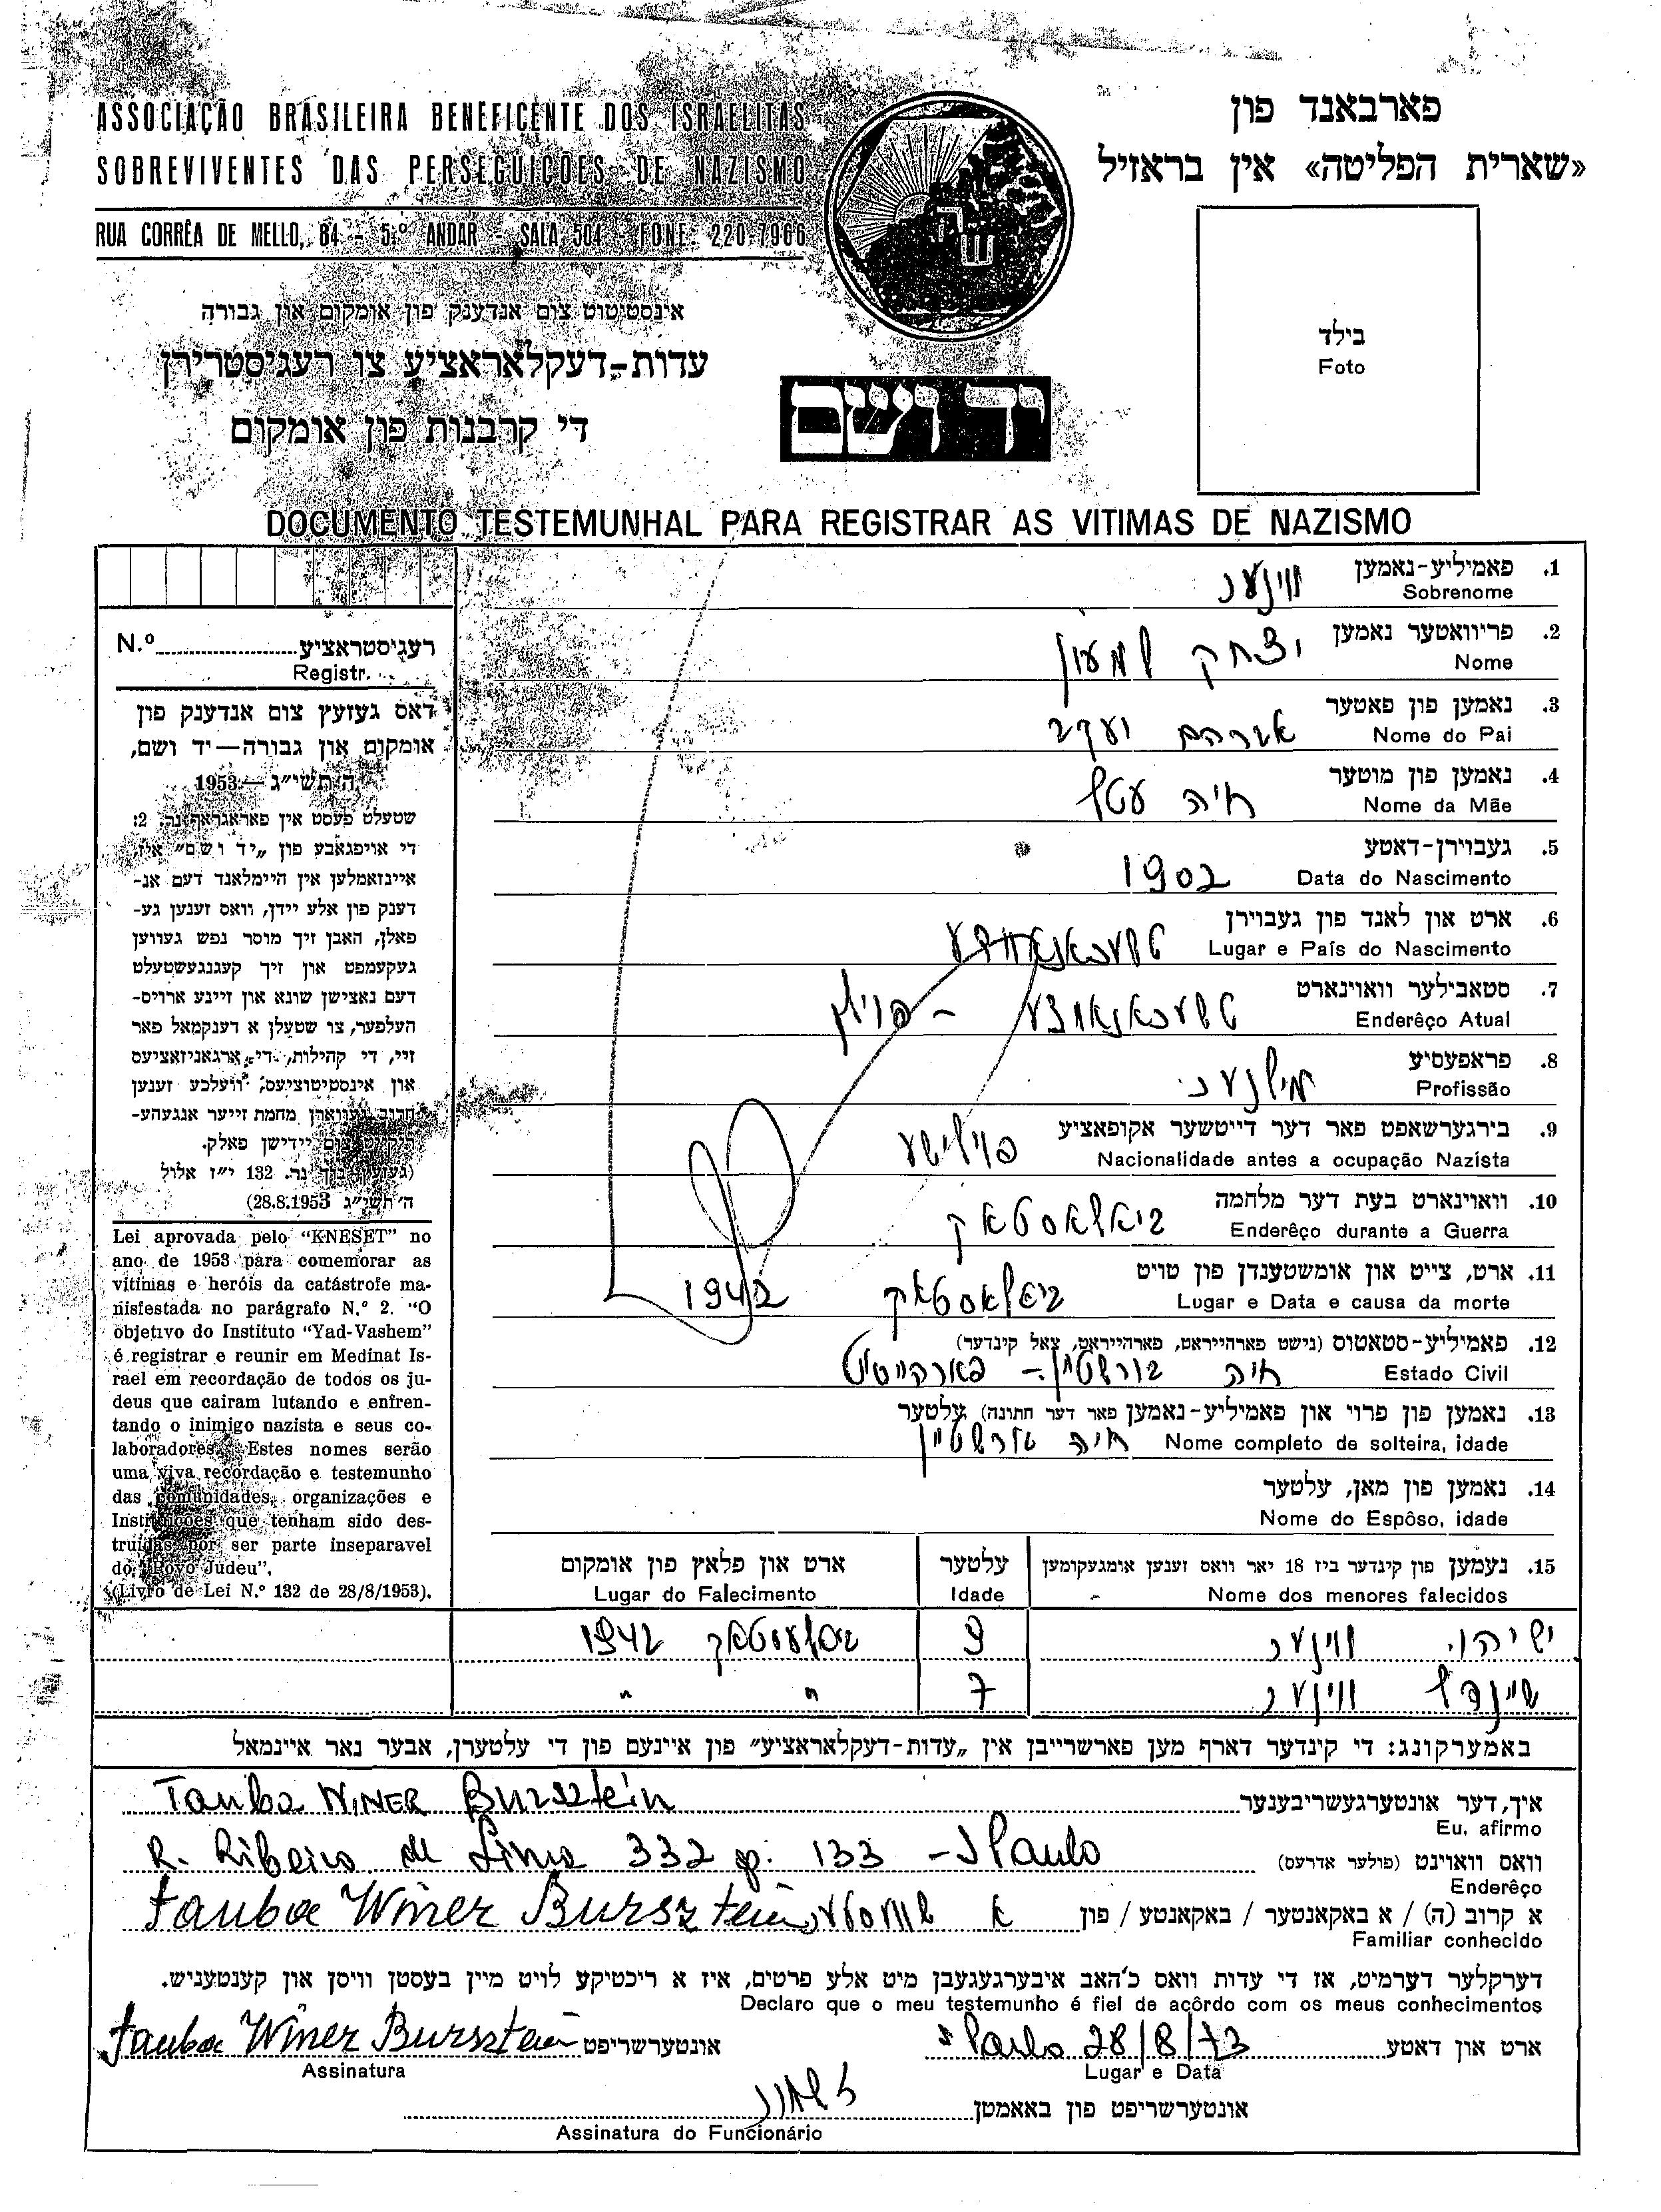 ASSOCIAÇÃO BRASILEIRA BENEFICENTE DOS ISRAELITAS
SOBREVIVENTES DAS PERSEGUIÇÕES DE NAZISMO
RUA CORRÊA DE MELLO, 84 - 5.º ANDAR - SALA 504 - FONE: 220-7966
פארבאנד פון
«שארית הפליטה» אין בראזיל
אינסטיטוט צום אנדענק פון אומקום און גבורה
עדות-דעקלאראציע צו רעגיסטרירן
די קרבנות פון אומקום
יד ושם
בילד
Foto
DOCUMENTO TESTEMUNHAL PARA REGISTRAR AS VITIMAS DE NAZISMO
רעגיסטראציע N.º
Registr.
דאס געזעץ צום אנדענק פון
אומקום און גבורה — יד ושם,
ה'תשי"ג — 1953
שטעלט פעסט אין פאראגראף נר. 2:
די אויפגאבע פון „יד ושם" איז
איינזאמלען אין היימלאנד דעם אנ-
דענק פון אלע יידן, וואס זענען גע-
פאלן, האבן זיך מוסר נפש געווען
געקעמפט און זיך קעגנגעשטעלט
דעם נאצישן שונא און זיינע ארויס-
העלפער, צו שטעלן א דענקמאל פאר
זיי, די קהילות, די ארגאניזאציעס
און אינסטיטוציעס, וועלכע זענען
חרוב געווארן מחמת זייער אנגעהע-
ריקייט צום יידישן פאלק.
(געזעץ בוך נר. 132 י"ז אלול
ה'תשי"ג 28.8.1953)
Lei aprovada pelo "KNESET" no
ano de 1953 para comemorar as
vitimas e heróis da catástrofe ma-
nisfestada no parágrafo N.º 2. "O
objetivo do Instituto "Yad-Vashem"
é registrar e reunir em Medinat Is-
rael em recordação de todos os ju-
deus que cairam lutando e enfren-
tando o inimigo nazista e seus co-
laboradores. Estes nomes serão
uma viva recordação e testemunho
das comunidades, organizações e
Instituições que tenham sido des-
truidas por ser parte inseparavel
do "Povo Judeu",
(Livro de Lei N.º 132 de 28/8/1953).
1. פאמיליע-נאמען ווינער
Sobrenome
2. פריוואטער נאמען יצחק שמעון
Nome
3. נאמען פון פאטער אברהם יעקב
Nome do Pai
4. נאמען פון מוטער חיה עטל
Nome da Mãe
5. געבוירן-דאטע
Data do Nascimento 1902
6. ארט און לאנד פון געבוירן
Lugar e País do Nascimento
7. סטאבילער וואוינארט
Enderêço Atual – פוילן
8. פראפעסיע
Profissão מילנער
9. בירגערשאפט פאר דער דייטשער אקופאציע פוילישע
Nacionalidade antes a ocupação Nazista
10. וואוינארט בעת דער מלחמה
Enderêço durante a Guerra ביאלאסטאק
11. ארט, צייט און אומשטענדן פון טויט
Lugar e Data e causa da morte ביאלאסטאק 1942
12. פאמיליע-סטאטוס (נישט פארהייראט, פארהייראט, צאל קינדער)
Estado Civil חיה בורשטיין –
13. נאמען פון פרוי און פאמיליע-נאמען (פאר דער חתונה) עלטער
Nome completo de solteira, idade חיה בורשטיין
14. נאמען פון מאן, עלטער
Nome do Espôso, idade
15. נעמען פון קינדער ביז 18 יאר וואס זענען אומגעקומען עלטער ארט און פלאץ פון אומקום
Nome dos menores falecidos Idade Lugar do Falecimento
ישיהו ווינער 9 ביאליסטאק 1942
שיינדל ווינער 7 " "
באמערקונג: די קינדער דארף מען פארשרייבן אין „עדות-דעקלאראציע" פון איינעם פון די עלטערן, אבער נאר איינמאל
איך, דער אונטערגעשריבענער Tauba WINER Bursztein
Eu, afirmo
וואס וואוינט (פולער אדרעס) R. Ribeiro de Lima 332 ap. 133 - S Paulo
Enderêço
א קרוב (ה) / א באקאנטער / באקאנטע / פון א שוועסטער Tauba Winer Bursztein
Familiar conhecido
דערקלער דערמיט, אז די עדות וואס כ'האב איבערגעגעבן מיט אלע פרטים, איז א ריכטיקע לויט מיין בעסטן וויסן און קענטעניש.
Declaro que o meu testemunho é fiel de acôrdo com os meus conhecimentos
ארט און דאטע S Paulo 28/8/73 אונטערשריפט Tauba Winer Bursztein
Lugar e Data Assinatura
אונטערשריפט פון באאמטן
Assinatura do Funcionário